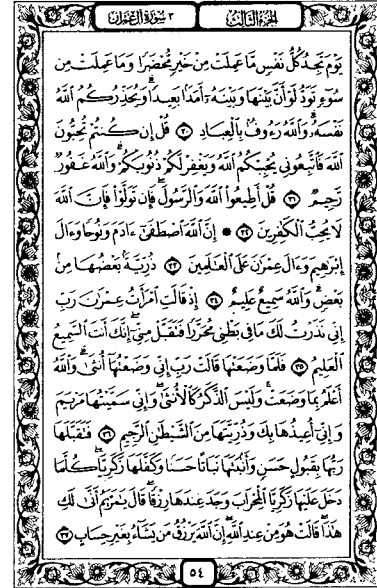 الجزء الثالث
٣ سورة آل عمران
يَوْمَ تَجِدُ كُلُّ نَفْسٍ مَّا عَمِلَتْ مِنْ خَيْرٍ مُّحْضَرًا وَمَا عَمِلَتْ مِن
سُوٓءٍ تَوَدُّ لَوْ أَنَّ بَيْنَهَا وَبَيْنَهُۥٓ أَمَدًۢا بَعِيدًا وَيُحَذِّرُكُمُ ٱللَّهُ
نَفْسَهُۥ وَٱللَّهُ رَءُوفٌۢ بِٱلْعِبَادِ ٣٠ قُلْ إِن كُنتُمْ تُحِبُّونَ
ٱللَّهَ فَٱتَّبِعُونِى يُحْبِبْكُمُ ٱللَّهُ وَيَغْفِرْ لَكُمْ ذُنُوبَكُمْ وَٱللَّهُ غَفُورٌ
رَّحِيمٌ ٣١ قُلْ أَطِيعُوا۟ ٱللَّهَ وَٱلرَّسُولَ فَإِن تَوَلَّوْا۟ فَإِنَّ ٱللَّهَ
لَا يُحِبُّ ٱلْكَٰفِرِينَ ٣٢ إِنَّ ٱللَّهَ ٱصْطَفَىٰٓ ءَادَمَ وَنُوحًا وَءَالَ
إِبْرَٰهِيمَ وَءَالَ عِمْرَٰنَ عَلَى ٱلْعَٰلَمِينَ ٣٣ ذُرِّيَّةًۢ بَعْضُهَا مِنۢ
بَعْضٍ وَٱللَّهُ سَمِيعٌ عَلِيمٌ ٣٤ إِذْ قَالَتِ ٱمْرَأَتُ عِمْرَٰنَ رَبِّ
إِنِّى نَذَرْتُ لَكَ مَا فِى بَطْنِى مُحَرَّرًا فَتَقَبَّلْ مِنِّىٓ إِنَّكَ أَنتَ ٱلسَّمِيعُ
ٱلْعَلِيمُ ٣٥ فَلَمَّا وَضَعَتْهَا قَالَتْ رَبِّ إِنِّى وَضَعْتُهَآ أُنثَىٰ وَٱللَّهُ
أَعْلَمُ بِمَا وَضَعَتْ وَلَيْسَ ٱلذَّكَرُ كَٱلْأُنثَىٰ وَإِنِّى سَمَّيْتُهَا مَرْيَمَ
وَإِنِّىٓ أُعِيذُهَا بِكَ وَذُرِّيَّتَهَا مِنَ ٱلشَّيْطَٰنِ ٱلرَّجِيمِ ٣٦ فَتَقَبَّلَهَا
رَبُّهَا بِقَبُولٍ حَسَنٍ وَأَنۢبَتَهَا نَبَاتًا حَسَنًا وَكَفَّلَهَا زَكَرِيَّا كُلَّمَا
دَخَلَ عَلَيْهَا زَكَرِيَّا ٱلْمِحْرَابَ وَجَدَ عِندَهَا رِزْقًا قَالَ يَٰمَرْيَمُ أَنَّىٰ لَكِ
هَٰذَا قَالَتْ هُوَ مِنْ عِندِ ٱللَّهِ إِنَّ ٱللَّهَ يَرْزُقُ مَن يَشَآءُ بِغَيْرِ حِسَابٍ ٣٧
٥٤